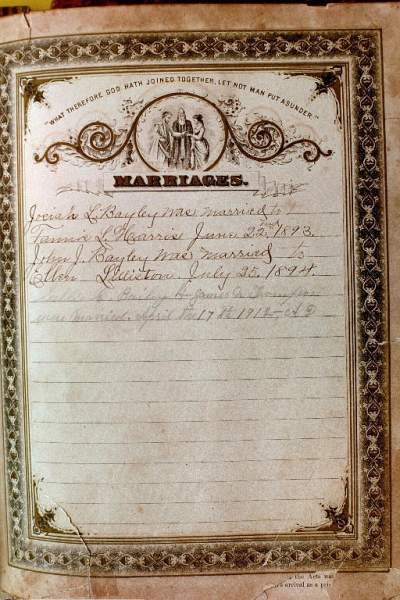 "WHAT THEREFORE GOD HATH JOINED TOGETHER, LET NOT MAN PUT ASUNDER."
MARRIAGES.
Josiah L. Bayley was married to
Fannie L. Harris June 22nd 1893.
John J. Bayley was married to
Ellen July 25, 1894.
James
were married April the 17th 1912, A D
the Acts
arrived as a